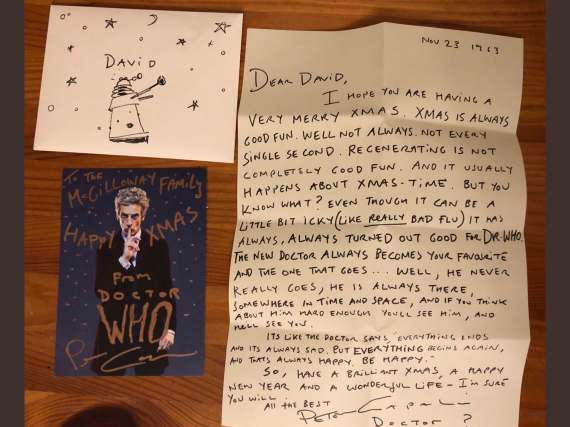 DAVID
TO THE
McGILLOWAY FAMILY
HAPPY XMAS
FROM
DOCTOR
WHO
NOV 23 1963
DEAR DAVID,
I HOPE YOU ARE HAVING A
VERY MERRY XMAS. XMAS IS ALWAYS
GOOD FUN. WELL NOT ALWAYS. NOT EVERY
SINGLE SECOND. REGENERATING IS NOT
COMPLETELY GOOD FUN. AND IT USUALLY
HAPPENS ABOUT XMAS-TIME. BUT YOU
KNOW WHAT? EVEN THOUGH IT CAN BE A
LITTLE BIT ICKY (LIKE REALLY BAD FLU) IT HAS
ALWAYS, ALWAYS TURNED OUT GOOD FOR DR. WHO.
THE NEW DOCTOR ALWAYS BECOMES YOUR FAVOURITE
AND THE ONE THAT GOES... WELL, HE NEVER
REALLY GOES, HE IS ALWAYS THERE,
SOMEWHERE IN TIME AND SPACE, AND IF YOU THINK
ABOUT HIM HARD ENOUGH YOU'LL SEE HIM, AND
HE'LL SEE YOU.
ITS LIKE THE DOCTOR SAYS "EVERYTHING ENDS
AND ITS ALWAYS SAD. BUT EVERYTHING BEGINS AGAIN,
AND THATS ALWAYS HAPPY. BE HAPPY."
SO, HAVE A BRILLIANT XMAS, A HAPPY
NEW YEAR AND A WONDERFUL LIFE - I'M SURE
YOU WILL.
ALL THE BEST
PETER CAPALDI
DOCTOR ?